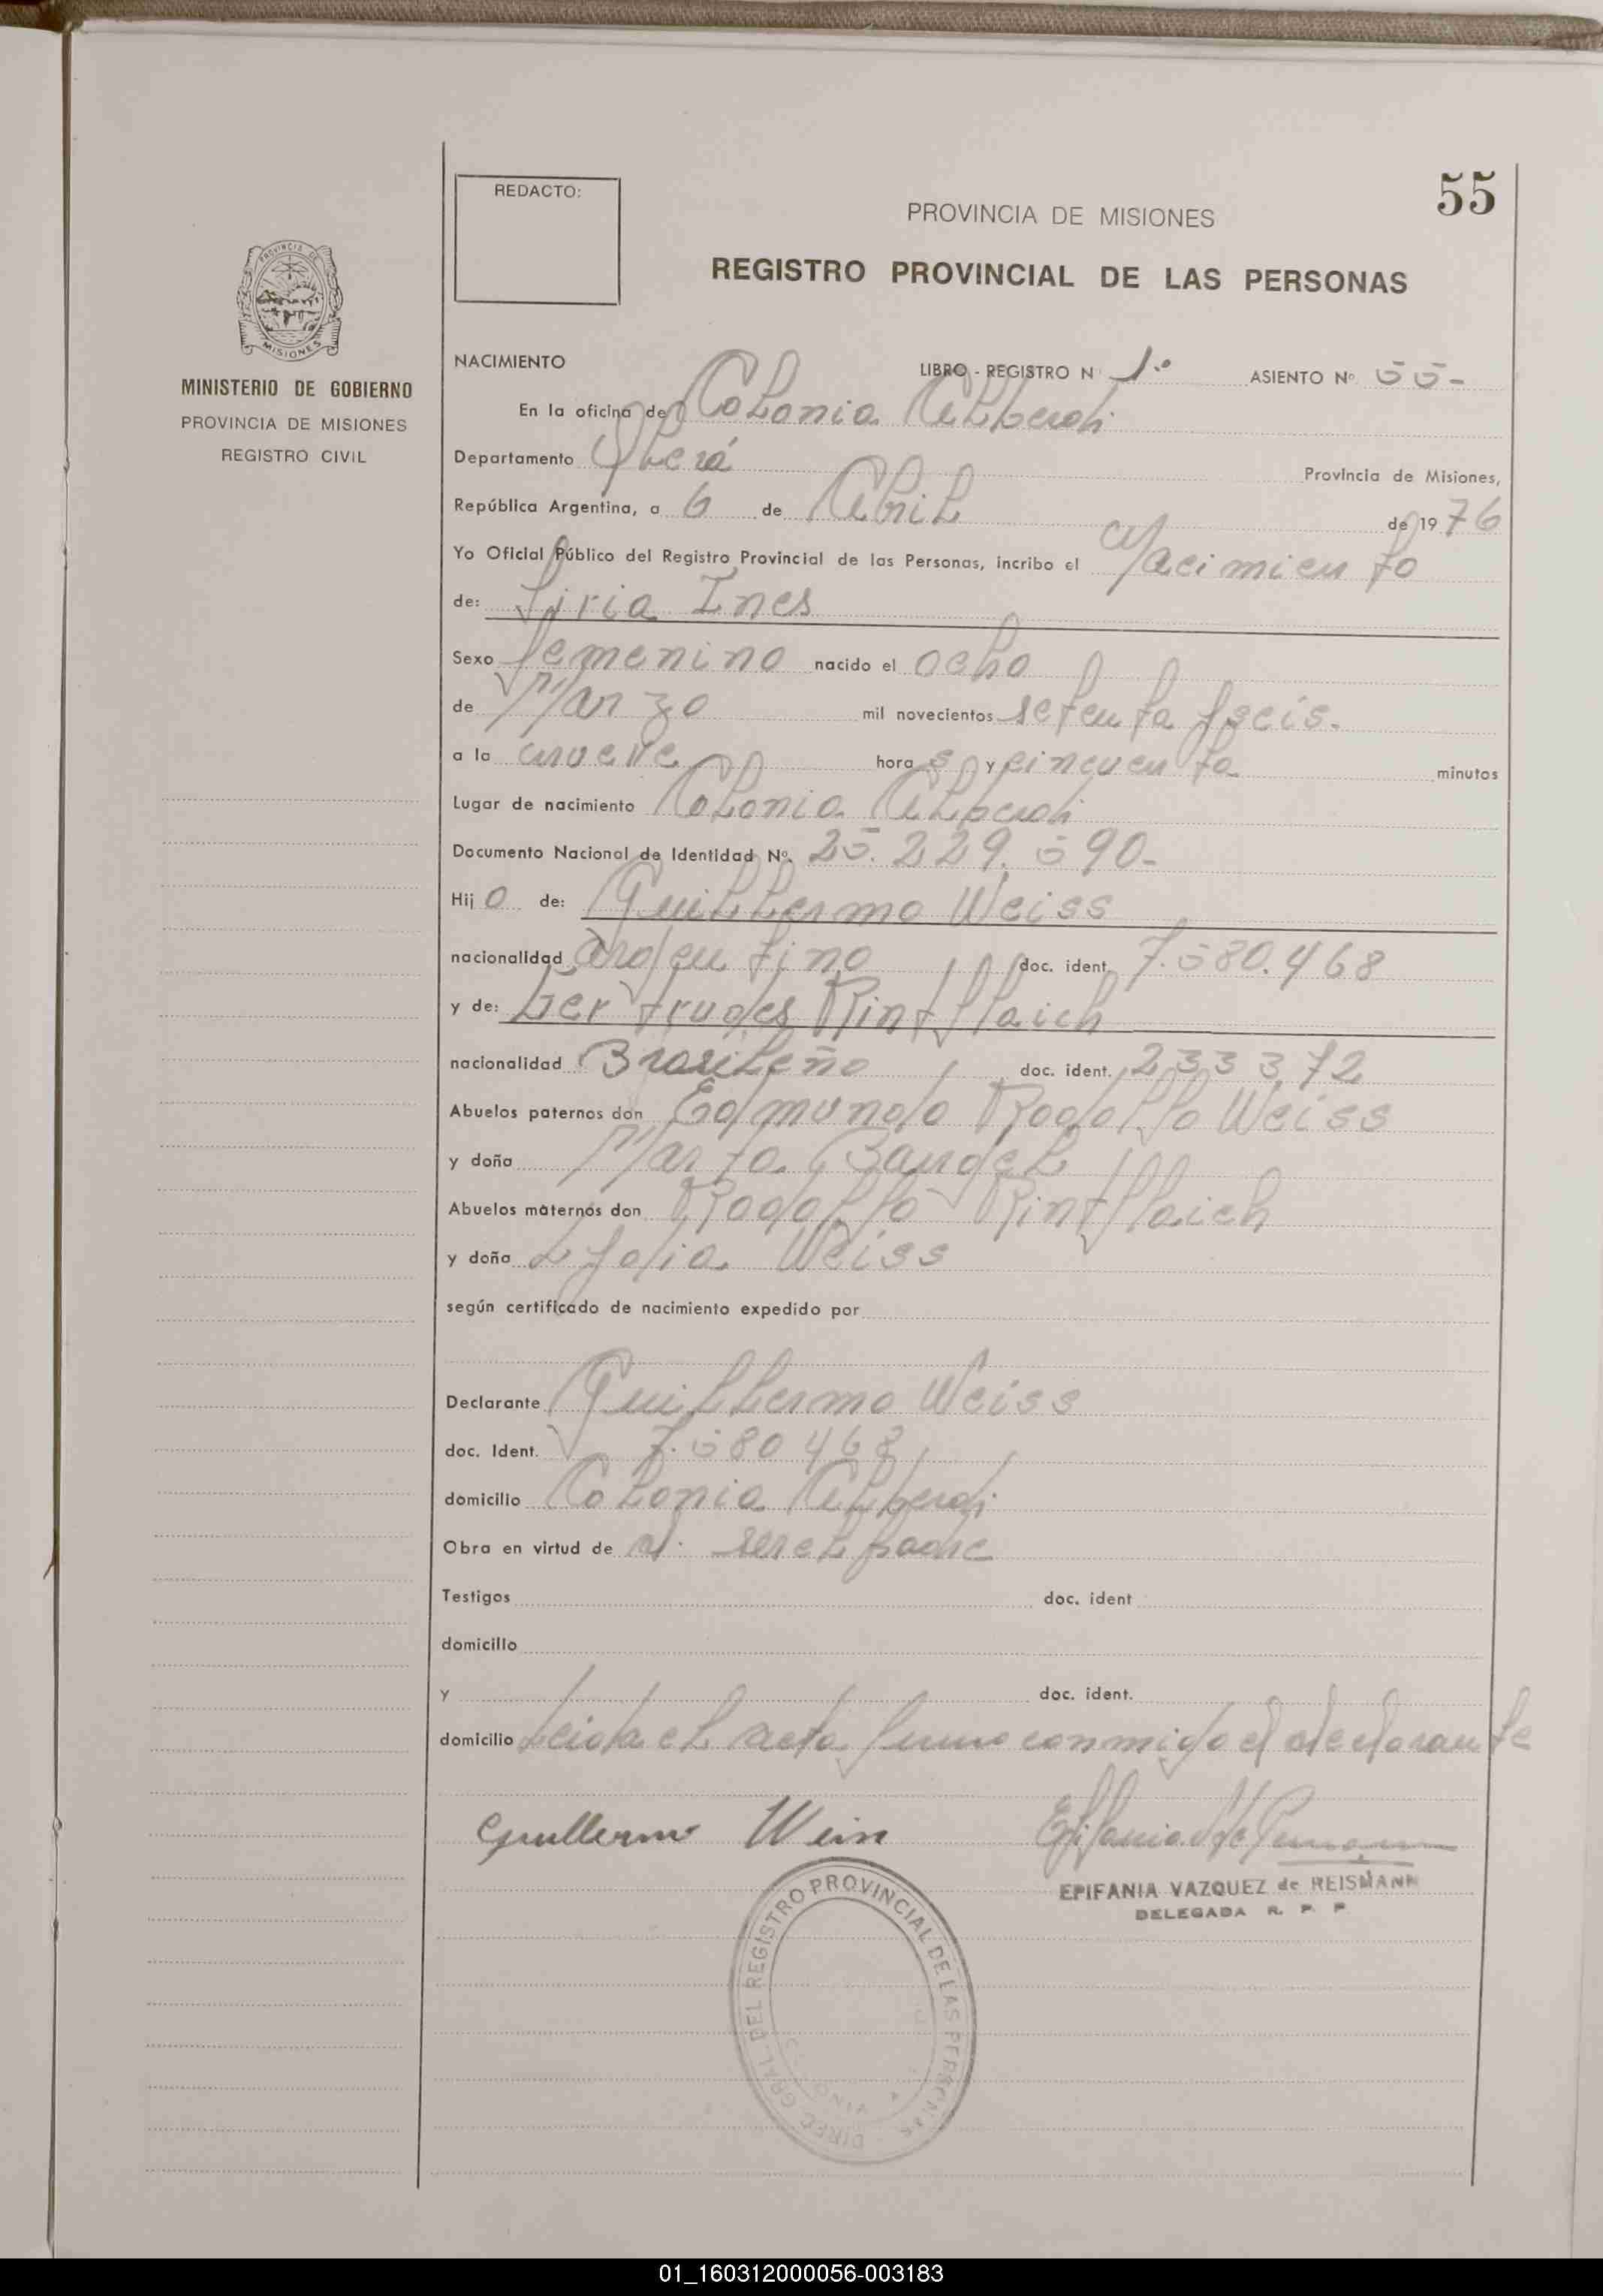 55
REDACTO:
PROVINCIA DE MISIONES
REGISTRO PROVINCIAL DE LAS PERSONAS
PROVINCIA DE MISIONES
MINISTERIO DE GOBIERNO
PROVINCIA DE MISIONES
REGISTRO CIVIL
NACIMIENTO LIBRO - REGISTRO N 1º ASIENTO Nº 55-
En la oficina de Colonia Alberdi
Departamento Oberá Provincia de Misiones,
República Argentina, a 6 de Abril de 1976
Yo Oficial Público del Registro Provincial de las Personas, incribo el Nacimiento
de: Siria Ines
Sexo femenino nacido el ocho
de Marzo mil novecientos setenta y seis.
a la nueve hora s y cincuenta minutos
Lugar de nacimiento Colonia Alberdi
Documento Nacional de Identidad Nº. 25.229.590-
Hij o de: Guillermo Weiss
nacionalidad argentino doc. ident. 7.580.468
y de: Gertrudes Rintflaich
nacionalidad Brasileño doc. ident. 233372
Abuelos paternos don Edmundo Rodolfo Weiss
y doña Marta Bandel
Abuelos maternos don Rodolfo Rintflaich
y doña Lydia Weiss
según certificado de nacimiento expedido por
Declarante Guillermo Weiss
doc. Ident. 7.580468
domicilio Colonia Alberdi
Obra en virtud de ser el padre
Testigos doc. ident
domicilio
y doc. ident.
domicilio Leida el acta firma conmigo el declarante
Guillermo Weiss
EPIFANIA VAZQUEZ de REISMANN
DELEGADA R. P. P
DIREC. GRAL. DEL REGISTRO PROVINCIAL DE LAS PERSONAS
01_160312000056-003183